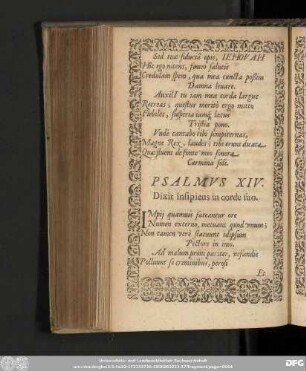 Sed tuæ fiduciâ opis, IEHOVAH
Hîc ego nitens, faueo salutis
Credulam spem, qua mea cuncta possim
Damna leuare.
Auxilî tu nam mea corda largus
Recreas; questus meritò ergo mitto
Flebiles, suspensa iamq́; lætus
Tristia pono.
Vnde cantabo tibi sempiternas,
Magne Rex, laudes: tibi erunt dicata
Quæ fluent de fonte meo futura
Carmina seclis.
PSALMVS XIV.
Dixit insipiens in corde suo.
IMpij quamuis fateantur ore
Numen externo, metuant quod vnum;
Non tamen verè statuunt idipsum
Pectore in imo.
Ad malum proni pariter, nefandis
Polluunt se criminibus, perosi
Et